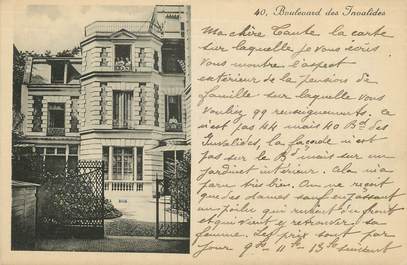 40, Boulevard des Invalides
Ma chère Tante la carte
sur laquelle je vous écris
vous montre l'aspect
extérieur de la pension de
famille sur laquelle vous
vouliez qq renseignements. Ce
n'est pas 44 mais 40 Bd des
Invalides, la façade n'est
pas sur le Bd mais sur un
jardinet intérieur. Cela m'a
paru très bien. On ne reçoit
que des dames sauf en passant
un poilu qui revient du front
et qui vient y retrouver sa
femme. Les prix sont par
jour 9f 11f 13f suivant